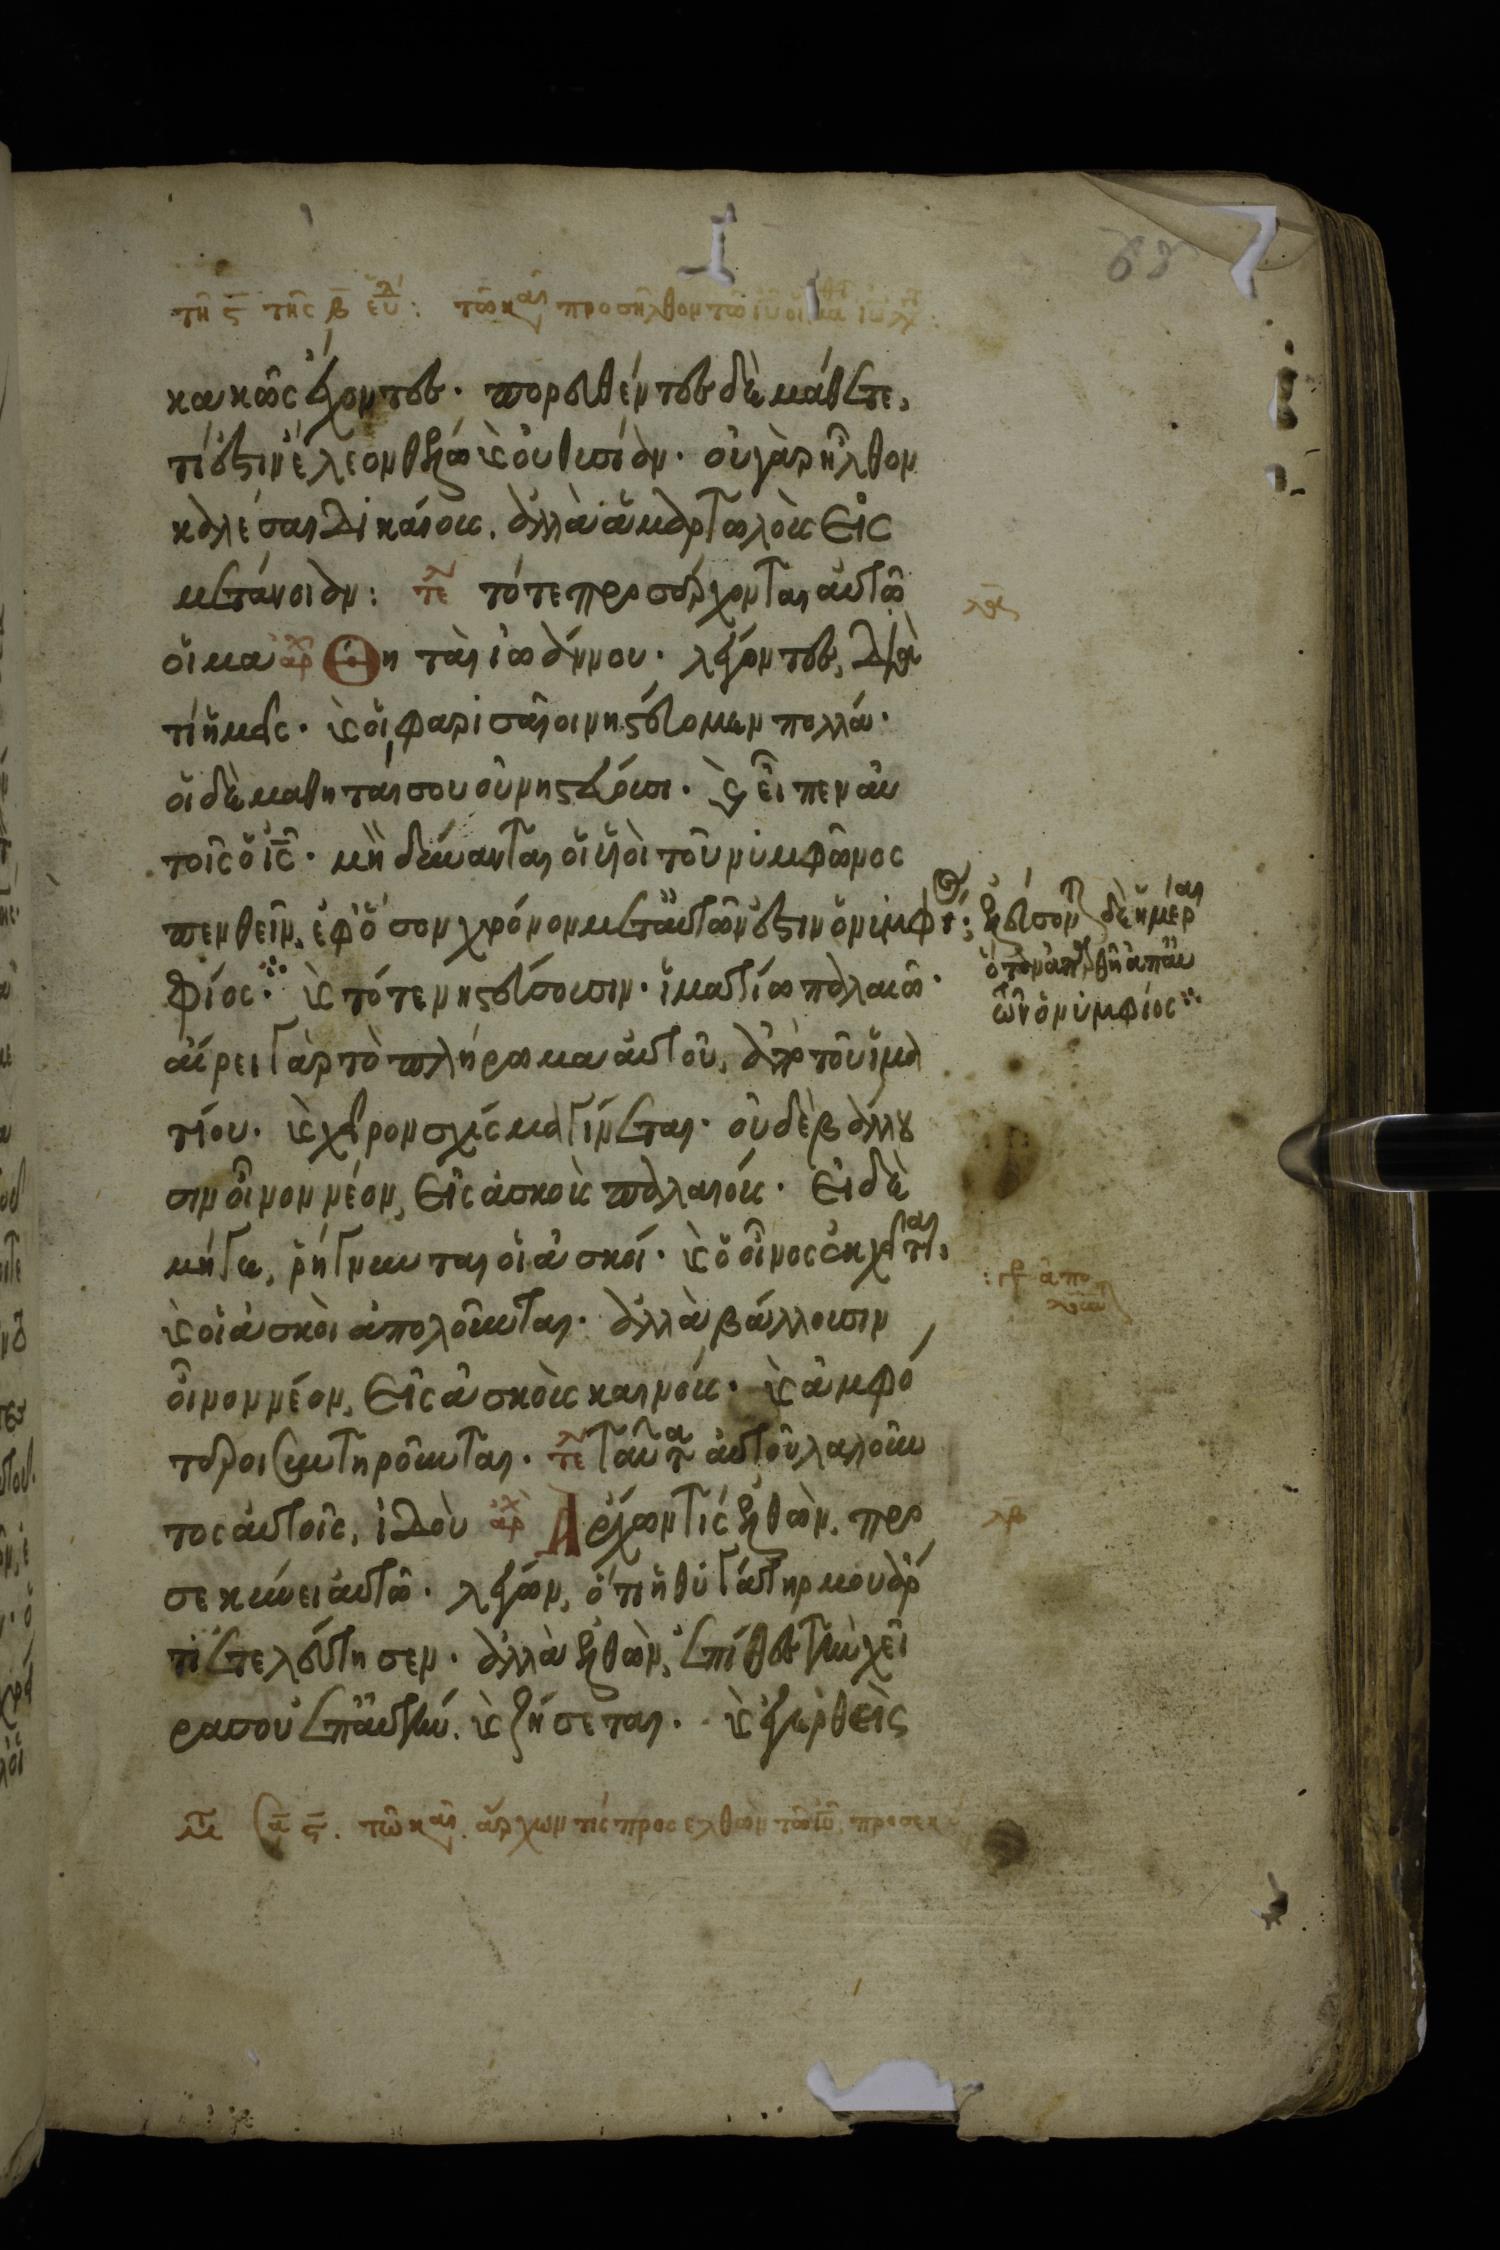 τῆ ϛ τῆς β ἑβ : τῶ καιρ προσῆλθον τῶ ἰῦ οἱ μα ἰω λ :
κακῶς ἔχοντες · πορευθέντες δὲ μάθετε,
τί ἐστιν ἔλεον θέλω καὶ οὐ θυσίαν · οὐ γὰρ ἦλθον
καλέσαι δικαίους, ἀλλὰ ἁμαρτωλοὺς εἰς
μετάνοιαν : τε τότε προσέρχονται αὐτῶ
οἱ μα αρχ θη ταὶ ἰωάννου · λέγοντες, διὰ
τί ἡμεῖς · καὶ οἱ φαρισαῖοι νηστεύομεν πολλά ·
οἱ δὲ μαθηταί σου οὐ νηστεύουσι · καὶ εἶπεν αὐ
τοῖς ὁ ις · μὴ δύνανται οἱ υἱοὶ τοῦ νυμφῶνος
πενθεῖν, ἐφ' ὅσον χρόνον μετ' αὐτῶν ἐστιν ὁ νυμφί :
φίος · καὶ τότε νηστεύσουσιν · ἱματίω παλαιῶ ·
ἐλεύσοντ δὲ ἡμέραι
ὅταν ἀπαρθῆ ἀπ' αὐ
τῶν ὁ νυμφίος
αἴρει γὰρ τὸ πλήρωμα αὐτοῦ, ἀπὸ τοῦ ἱμα
τίου · καὶ χεῖρον σχίσμα γίνεται · οὐδὲ βάλλου
σιν οἶνον νέον, εἰς ἀσκοὺς παλαιούς · εἰ δὲ
μήγε, ῥήγνυνται οἱ ἀσκοί · καὶ ὁ οἶνος ἐκχεῖται,
καὶ οἱ ἀσκοὶ ἀπολοῦνται · ἀλλὰ βάλλουσιν
οἶνον νέον, εἰς ἀσκοὺς καινούς · καὶ ἀμφό
τεροι συντηροῦνται · τε ταῦτα αὐτοῦ λαλοῦν
τος αὐτοῖς, ἰδοὺ αρχ Ἄρχων τίς ἐλθὼν, προ
σεκύνει αὐτῶ · λέγων, ὅτι ἡ θυγάτηρ μου ἄρ
τι ἐτελεύτησεν · ἀλλὰ ἐλθὼν, ἐπίθες τὴν χεῖ
ρα σου ἐπ' αὐτήν, καὶ ζήσεται · καὶ ἐγερθεὶς
τῶ καιρ. ἄρχων τίς προσελθὼν τῶ ἰῦ, προσεκύ